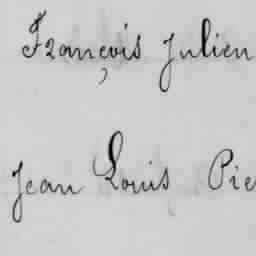 François Julien
Jean Louis Pie